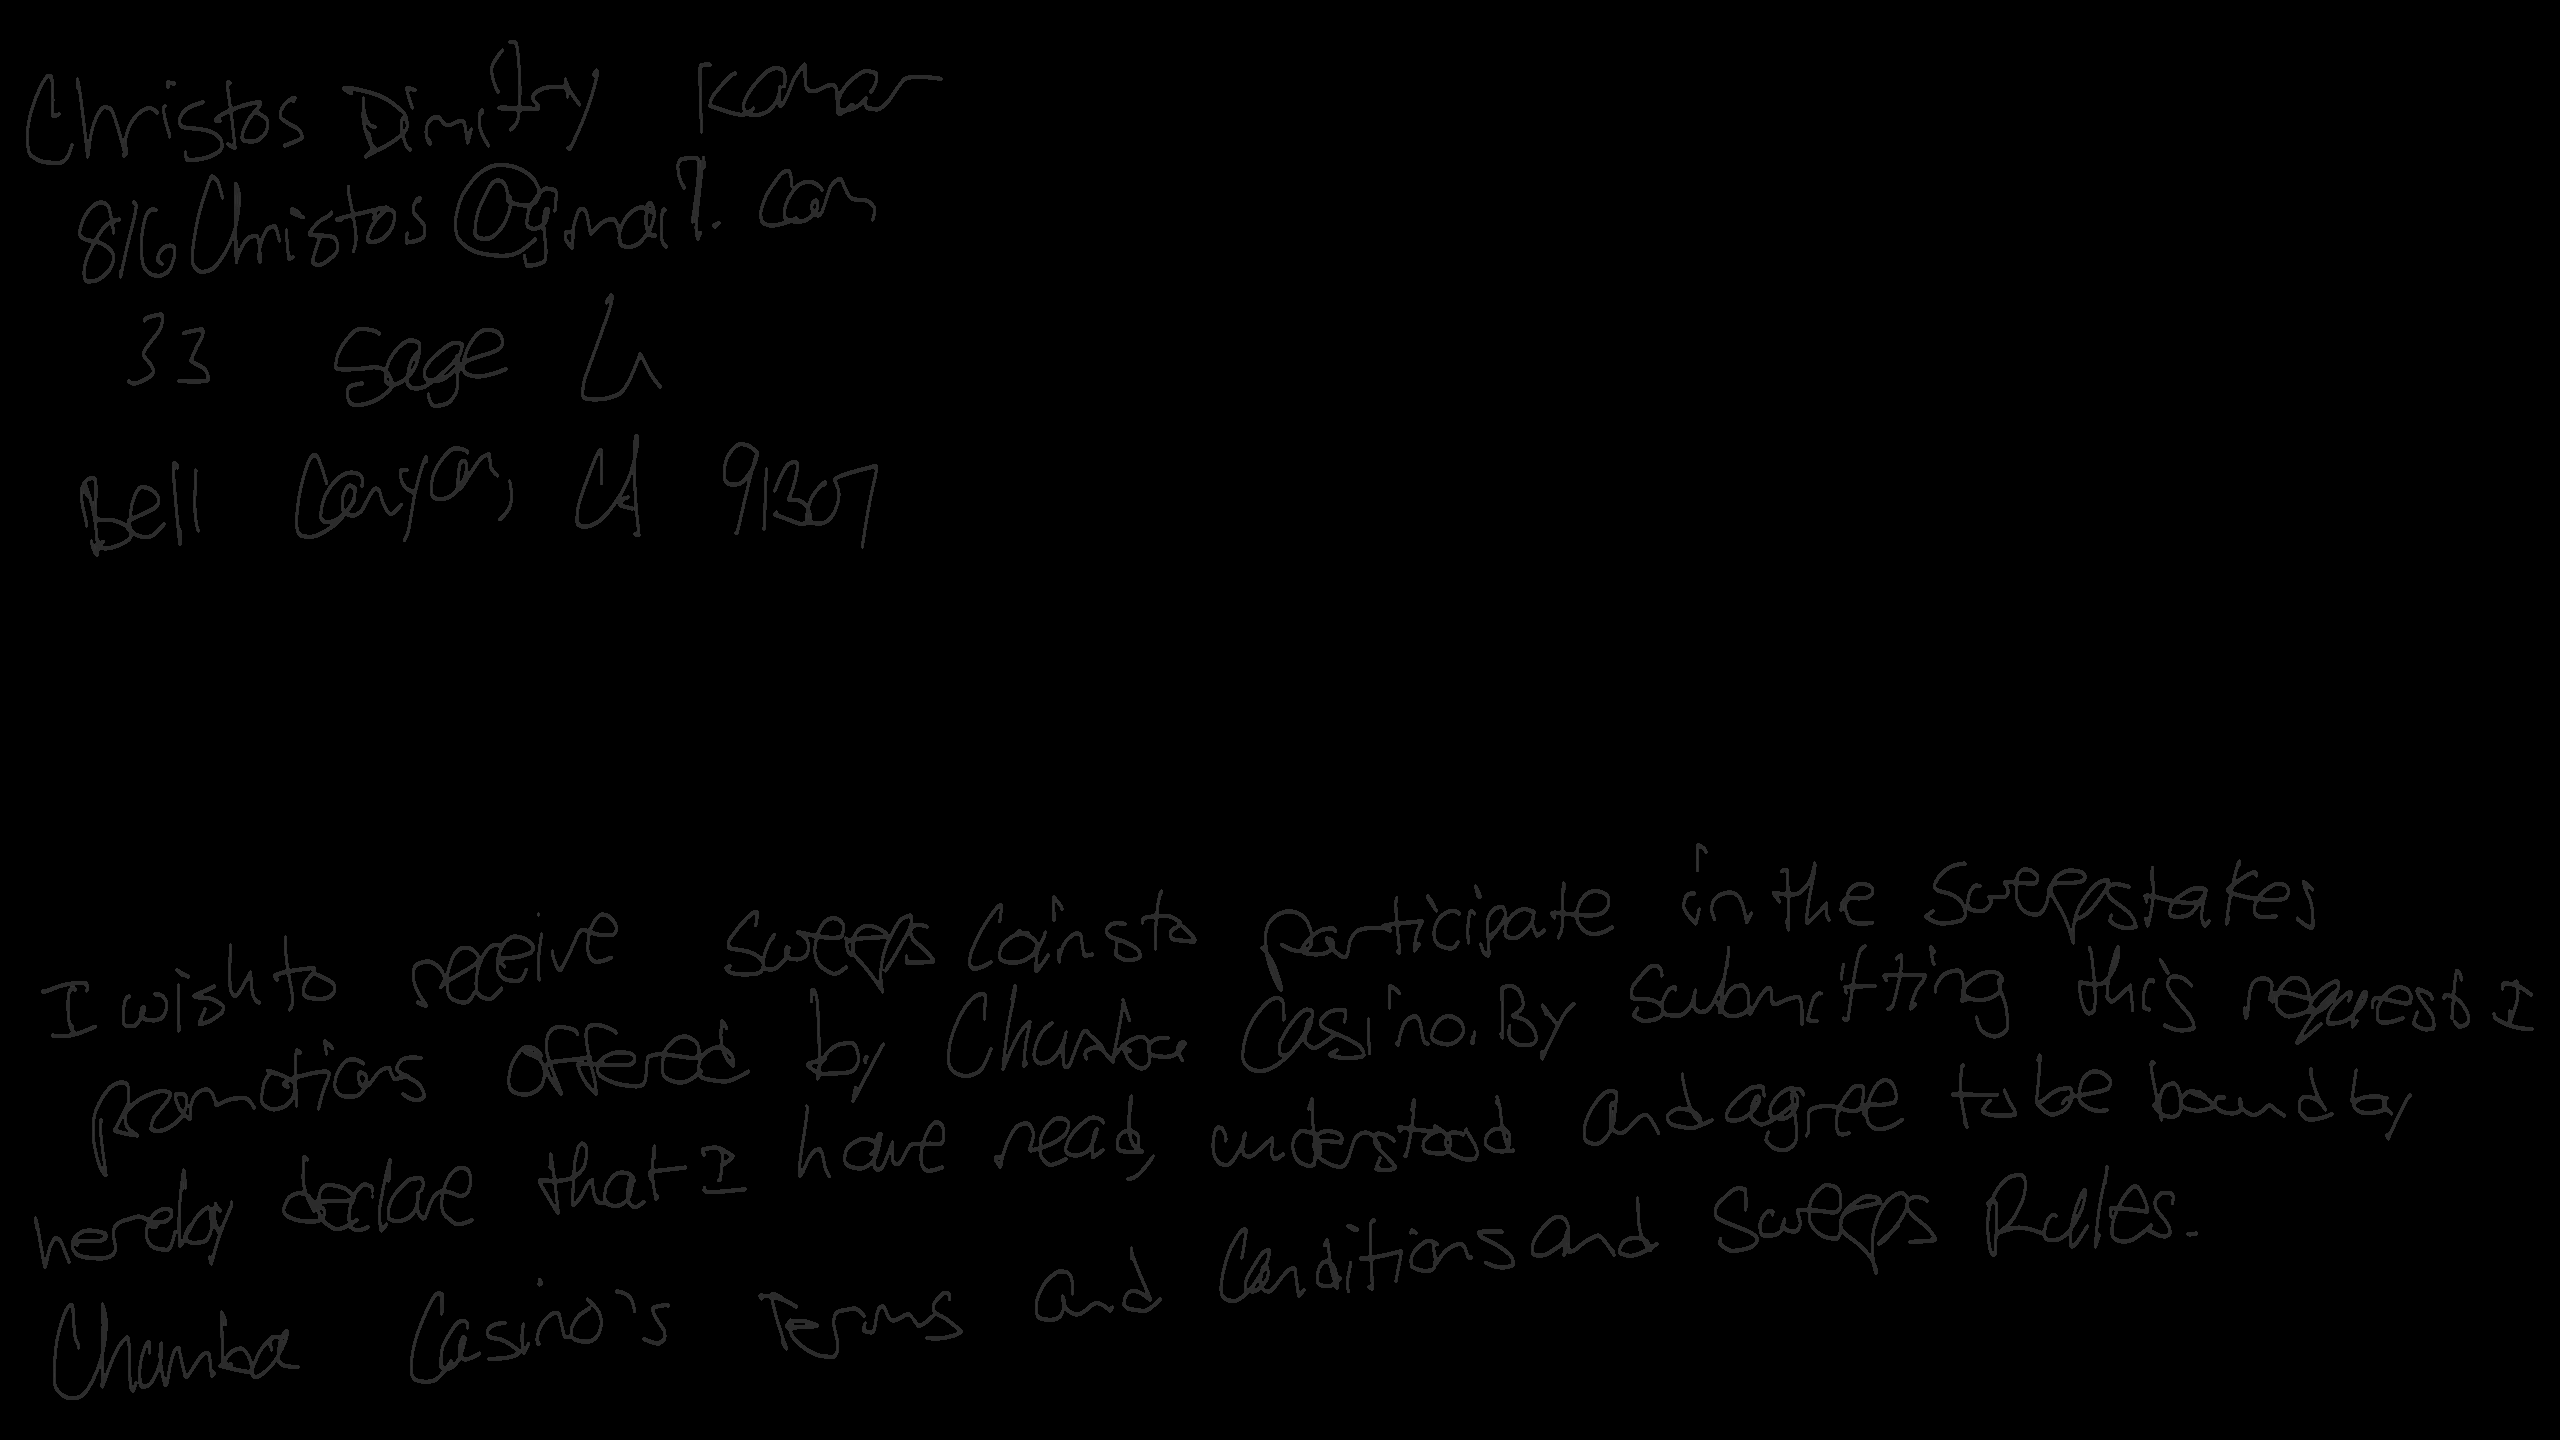 Christos Dimitry
816Christos@gmail.com
33 Sage Ln
Bell Canyon, CA 91307
I wish to receive Sweeps Coins to participate in the sweepstakes
promotions offered by Chumba Casino. By submitting this request I
hereby declare that I have read, understood and agree to be bound by
Chumba Casino's Terms and Conditions and Sweeps Rules.